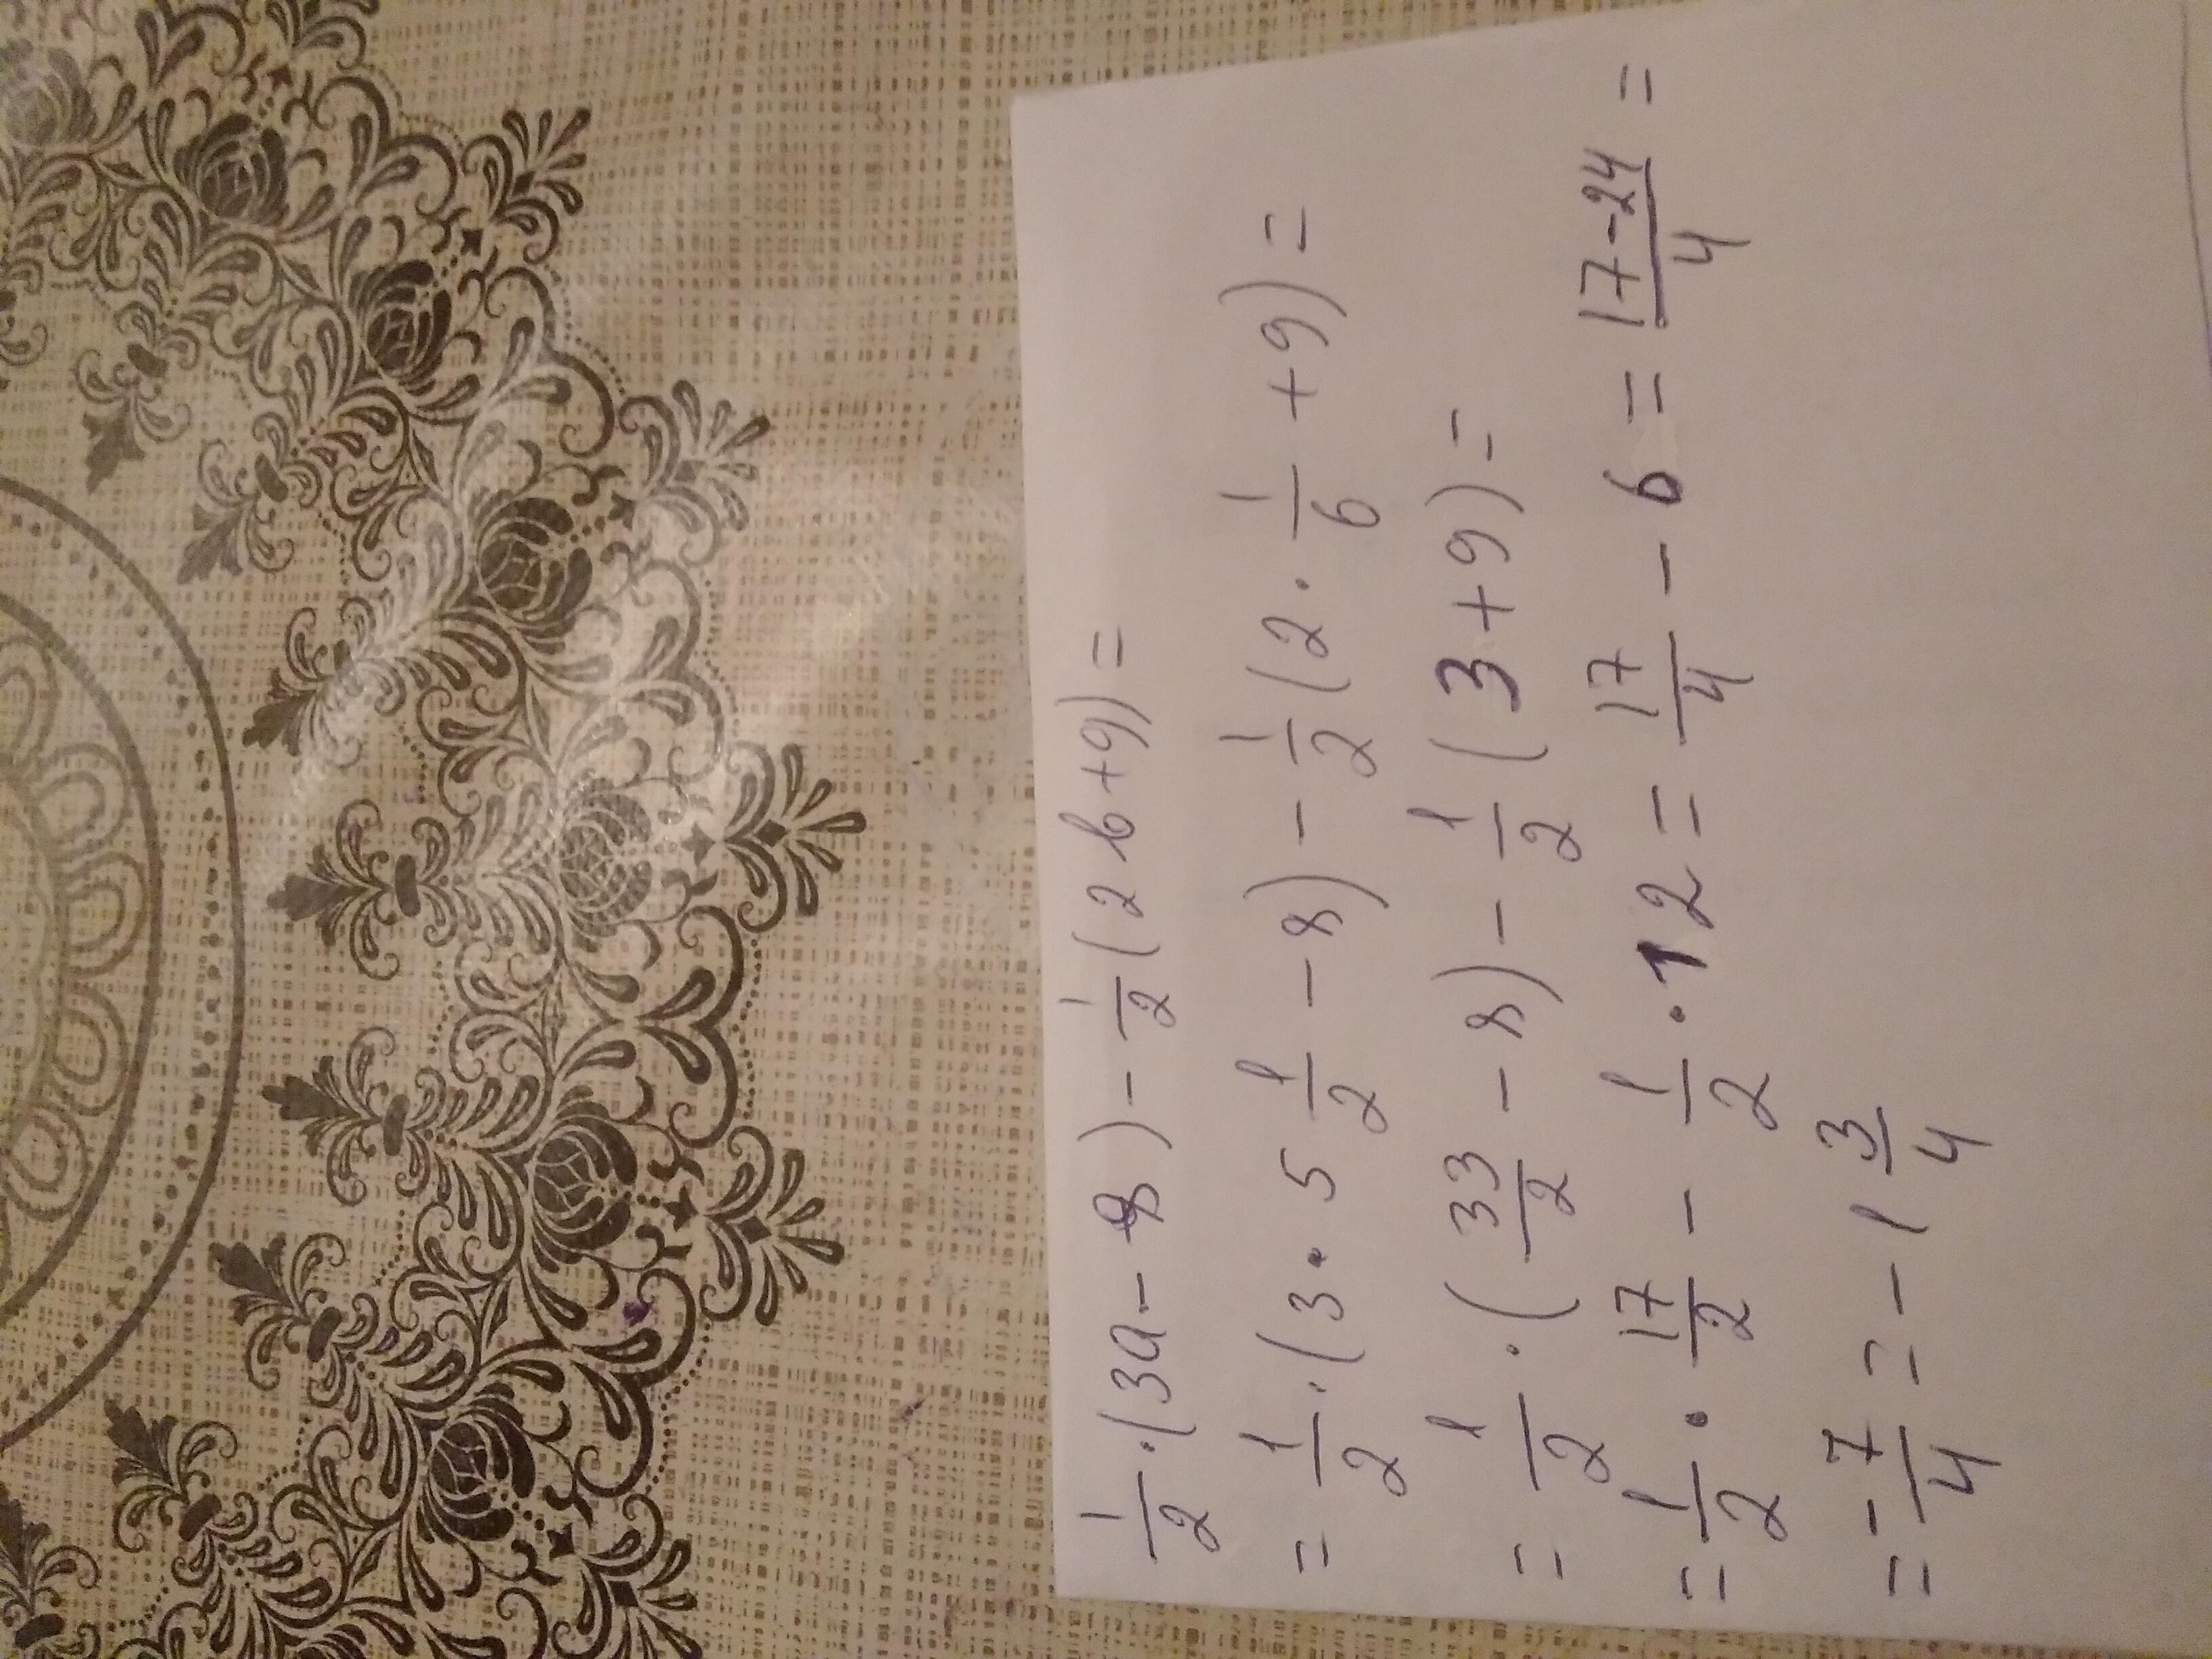 1/2·(3a-8)-1/2(2b+9)=
=1/2·(3·5 1/2-8)-1/2(2·1/6+9)=
=1/2·(33/2-8)-1/2(3+9)=
=1/2·17/2-1/2·12=17/4-6=17-24/4=
=-7/4=-1 3/4